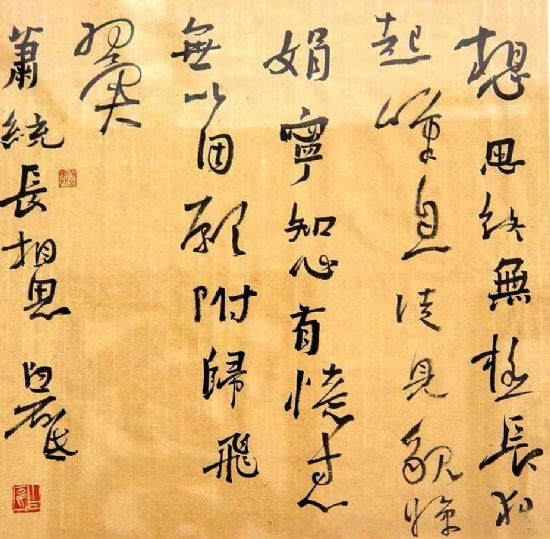 想思終無極長夜
起嘆息徒見貌嬋
娟寧知心有憶寸心
無以因願附歸飛
翼
蕭統長相思